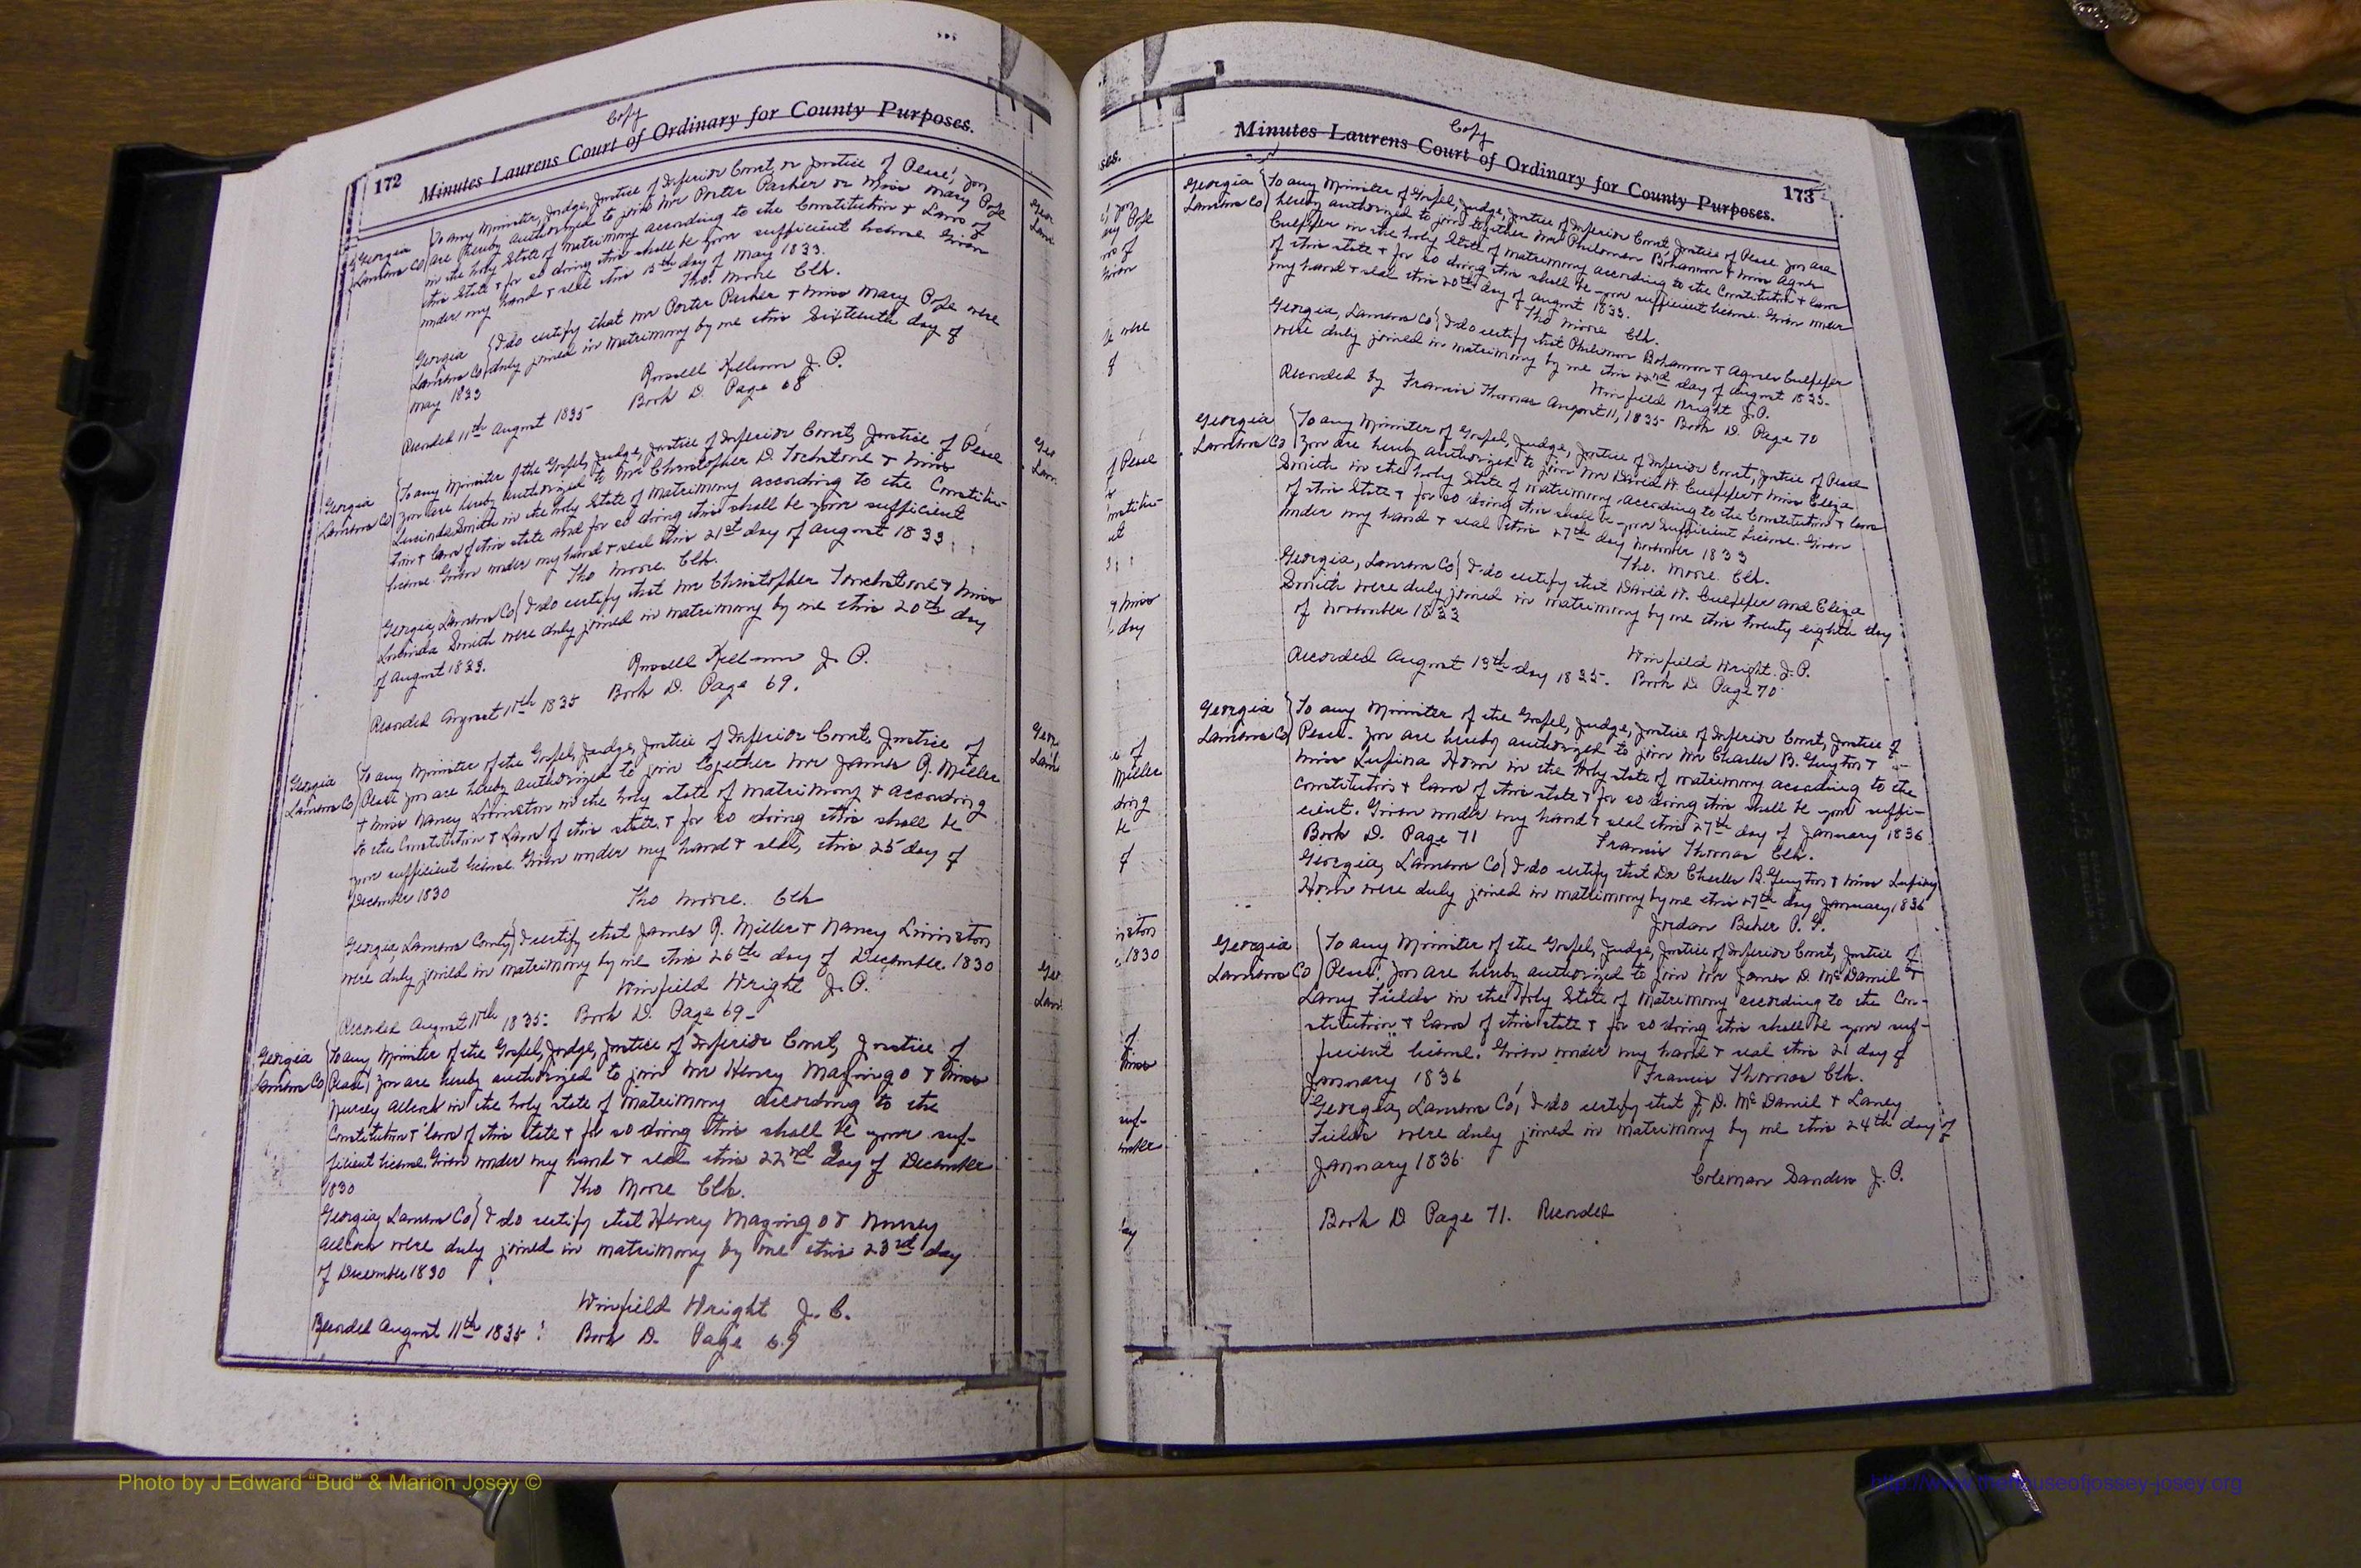 Copy
172 Minutes Laurens Court of Ordinary for County Purposes.
Georgia
Laurens Co
To any Minister, Judge, Justice of Inferior Court, or Justice of Peace, you
are hereby authorized to join Mr Porter Parker or Miss Mary Pope
in the holy state of matrimony according to the Constitution & Laws of
this State & for so doing this shall be your sufficient license Given
under my hand & seal this 15th day of May 1833.
Tho. Moore Clk.
Georgia
Laurens Co
I do certify that Mr Porter Parker & Miss Mary Pope were
duly joined in matrimony by me this Sixteenth day of
May 1833
Russell Kellum J. P.
Recorded 11th August 1835 Book D. Page 68
Georgia
Laurens Co
To any Minister of the Gospel, Judge, Justice of Inferior Court, Justice of Peace
you are hereby authorized to Mr Christopher D. Tochstone & Miss
Lucinda Smith in the holy state of matrimony according to the Constitu-
tion & laws of this state and for so doing this shall be your sufficient
license. Given under my hand & seal this 21st day of August 1833
Tho Moore Clk.
Georgia, Laurens Co I do certify that Mr Christopher Touchstone & Miss
Lucinda Smith were duly joined in matrimony by me this 20th day
of August 1833.
Russell Kellum J. P.
Recorded August 11th 1835 Book D. Page 69.
Georgia
Laurens Co
To any Minister of the Gospel, Judge, Justice of Inferior Court, Justice of
Peace you are hereby authorized to join together Mr James R. Miller
& Miss Nancy Livinston in the holy state of matrimony & according
to the Constitution & Laws of this state, & for so doing this shall be
your sufficient license. Given under my hand & seal, this 25 day of
December 1830
Tho Moore. Clk
Georgia, Laurens County I certify that James R. Miller & Nancy Livinston
were duly joined in matrimony by me this 26th day of December. 1830
Winfield Wright J. P.
Recorded August 11th 1835. Book D. Page 69-
Georgia
Laurens Co
To any Minister of the Gospel, Judge, Justice of Inferior Court, Justice of
Peace, you are hereby authorized to join Mr Henry Mazingo & Miss
in the holy state of matrimony according to the
Constitution & laws of this state & for so doing this shall be your suf-
ficient license. Given under my hand & seal this 22nd day of December
1830 Tho Moore Clk.
Georgia, Laurens Co I do certify that Henry Mazingo &
were duly joined in matrimony by me this 23rd day
of December 1830
Winfield Wright J. P.
Recorded August 11th 1835 Book D. Page 69
Copy
Minutes Laurens Court of Ordinary for County Purposes. 173
Georgia
Laurens Co
To any Minister of Gospel, Judge, Justice of Inferior Court, Justice of Peace you are
hereby authorized to join together Mr Philemon Bohannon & Miss Agnes
Culpeper in the holy state of matrimony according to the Constitution & laws
of this state & for so doing this shall be your sufficient license. Given under
my hand & seal this 20th day of August 1833.
Tho Moore Clk.
Georgia, Laurens Co I do certify that Philemon Bohannon & Agnes Culpeper
were duly joined in matrimony by me this 22nd day of August 1833-
Winfield Wright J.P.
Recorded by Francis Thomas August 11, 1835 Book D. Page 70
Georgia
Laurens Co
To any Minister of Gospel, Judge, Justice of Inferior Court, Justice of Peace
you are hereby authorized to join Mr David W. Culpeper & Miss Eliza
Smith in the holy state of matrimony according to the Constitution & laws
of this State & for so doing this shall be your sufficient License. Given
under my hand & seal this 27th day November 1833
Tho. Moore Clk.
Georgia, Laurens Co I do certify that David W. Culpeper and Eliza
Smith were duly joined in matrimony by me this twenty eighth day
of November 1833
Winfield Wright. J. P.
Recorded August 13th day 1835. Book D Page 70
Georgia
Laurens Co
To any Minister of the Gospel, Judge, Justice of Inferior Court, Justice of
Peace. you are hereby authorized to join Mr Charles B. Guyton &
Miss Lufina Horn in the Holy state of matrimony according to the
constitution & laws of this state & for so doing this shall be your suffi-
cient. Given under my hand & seal this 27th day of January 1836
Book D. Page 71 Francis Thomas Clk.
Georgia, Laurens Co I do certify that Dr Charles B. Guyton & Miss Lufina
Horn were duly joined in matrimony by me this 27th day January, 1836
Jordan Baker P. G.
Georgia
Laurens Co
To any Minister of the Gospel, Judge, Justice of Inferior Court, Justice of
Peace, you are hereby authorized to join Mr James D. McDaniel &
Laney Fields in the Holy State of Matrimony according to the Con-
stitution & laws of this state & for so doing this shall be your suf-
ficient license. Given under my hand & seal this 21 day of
January 1836 Francis Thomas Clk.
Georgia, Laurens Co, I do certify that J. D. McDaniel & Laney
Fields were duly joined in matrimony by me this 24th day of
January 1836
Coleman Sanders J. P.
Book D Page 71. Recorded
Photo by J Edward “Bud” & Marion Josey ©
http://www.thehouseofjossey-josey.org